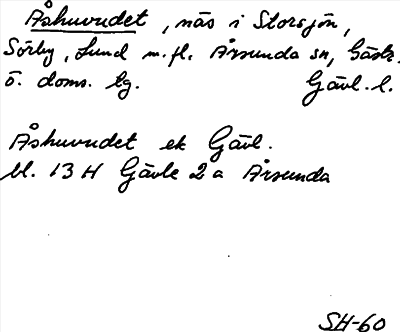 Åshuvudet, näs i Storsjön,
Sörby, Lund m.fl. Årsunda sn, Gästr.
ö. doms. tg. Gävl. l.
Åshuvudet ek Gävl.
bl. 13 H Gävle 2 a Årsunda
SH-60